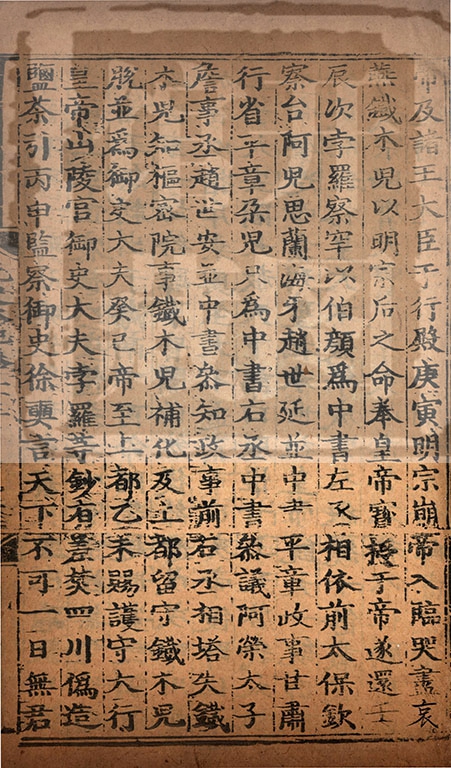 帝及諸王大臣于行殿庚寅明宗崩帝入臨哭盡哀
燕鐵木兒以明宗后之命奉皇帝寶授于帝遂還壬
辰次孛羅察罕以伯顔爲中書左丞相依前太保欽
察台阿兒思蘭海牙趙世延並中書平章政事甘肅
行省平章朶兒只爲中書右丞中書叅議阿榮太子
詹事丞趙世安並中書叅知政事前右丞相塔失鐵
木兒知樞密院事鐵木兒補化及上都留守鐵木兒
脫並爲御史大夫癸巳帝至上都乙未賜護守大行
皇帝山陵官御史大夫孛羅等鈔有差焚四川僞造
鹽茶引丙申監察御史徐奭言天下不可一日無君